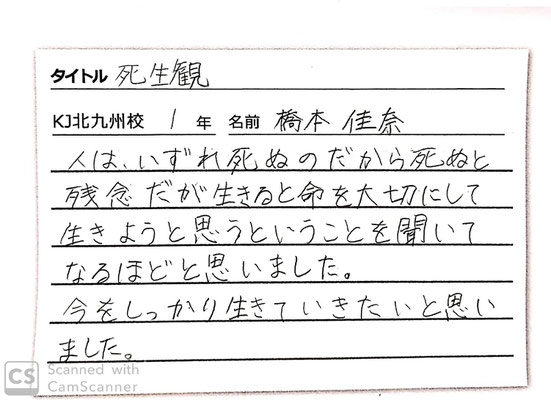 タイトル 死生観
KJ北九州校 1 年 名前 橋本 佳奈
人は、いずれ死ぬのだから死ぬと
残念だが生きると命を大切にして
生きようと思うということを聞いて
なるほどと思いました。
今をしっかり生きていきたいと思い
ました。
CS Scanned with
CamScanner